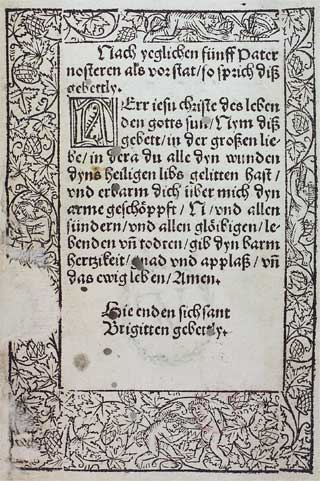 Nach yeglichen fünff Pater
nosteren als vor stat/so sprich diß
gebettly.
HErr iesu christe des leben
den gotts sun/Nym diß
gebett/in der großen lie-
be/in der a du alle dyn wunden
dyns heiligen libs gelitten hast/
vnd erbarm dich über mich dyn
arme geschöpfft/N/vnd allen
sündern/vnd allen glöibigen/le-
benden vñ todten/gib dyn barm
hertzikeit/gnad vnd applaß/vñ
das ewig leben/Amen.
Hie enden sich sant
Brigitten gebetly.